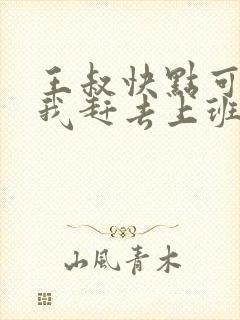 王叔快點可
我赶去上班
山風青木